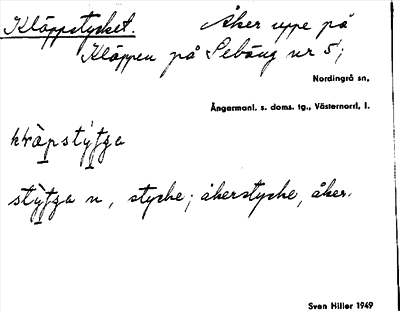 Kläppstycket. Åker uppe på
Kläppen på Sebäng nr 5;
Nordingrå sn,
Ångermanl. s. doms. tg., Västernorrl, l.
n, stycke; åkerstycke, åker.
Sven Hiller 1949